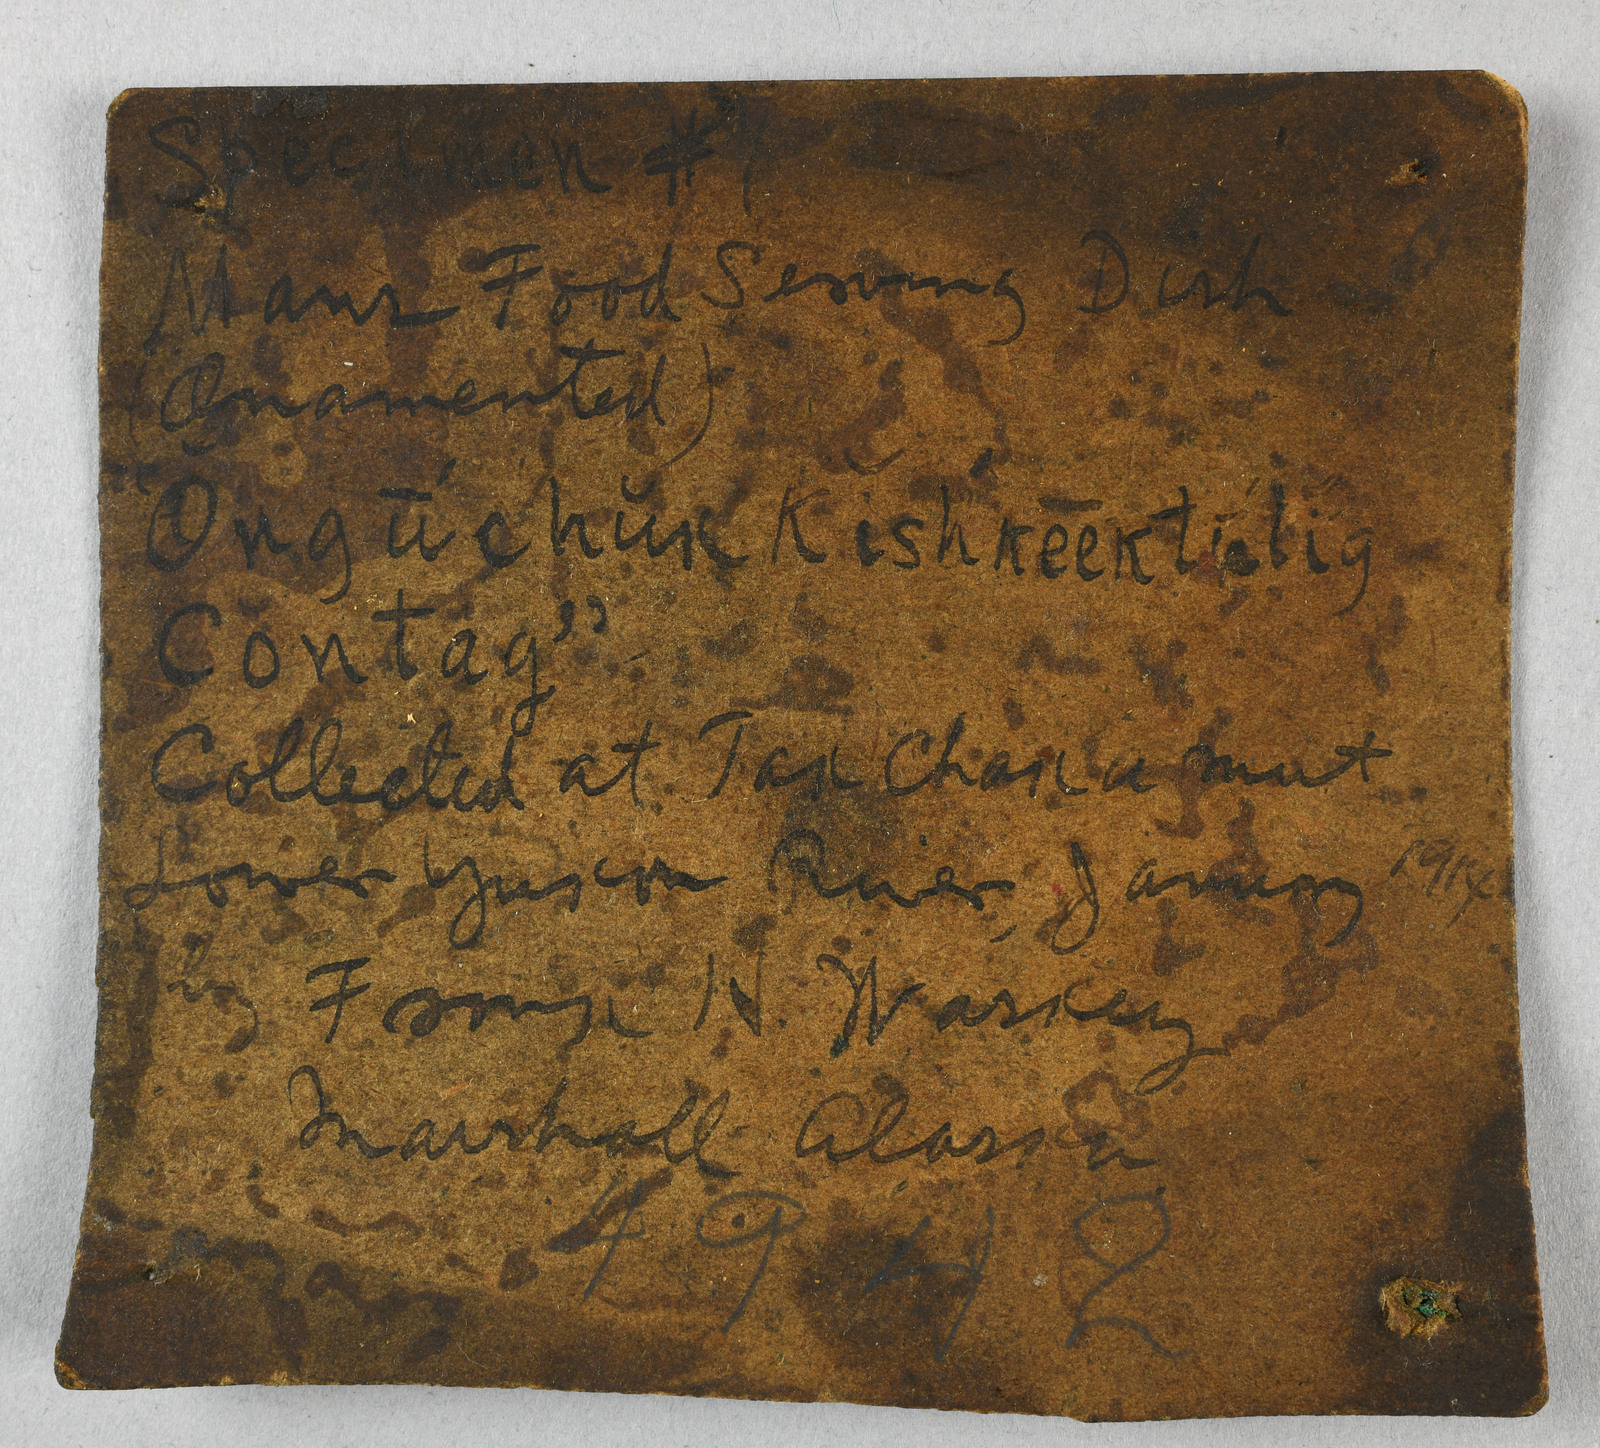 Specimen #7
Mans Food Serving Dish
(Ornamented)
"Ŏngū́chŭk Kishkēēktúlig
Cŏntăg"
Collected at Takchakamut
Lower Yukon River, January 1914
by Frank H. Waskey
Marshall Alaska
4942